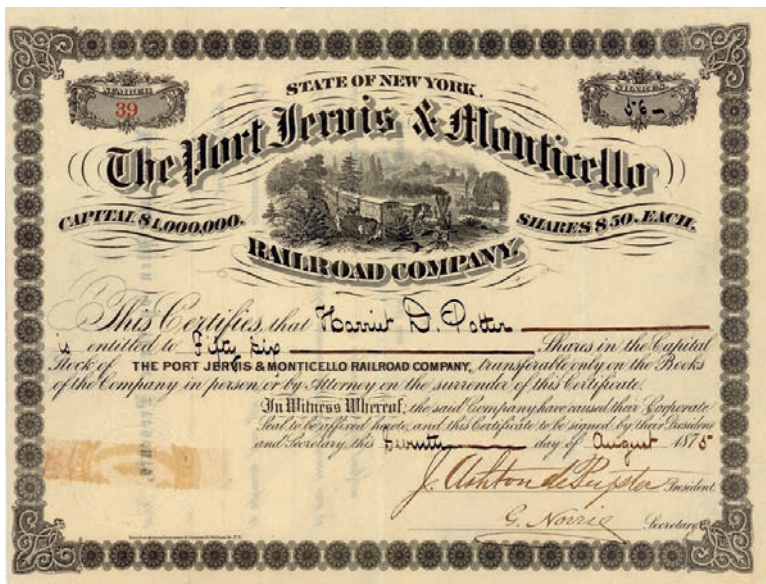 STATE OF NEW YORK.
NUMBER
39
SHARES
56
The Port Jervis & Monticello
CAPITAL $1,000,000.
SHARES $50. EACH.
RAILROAD COMPANY.
This Certifies, that Harriet D. Potter
is entitled to Fifty six Shares in the Capital
Stock of THE PORT JERVIS & MONTICELLO RAILROAD COMPANY, transferable only on the Books
of the Company in person or by Attorney on the surrender of this Certificate.
In Witness Whereof, the said Company have caused their Corporate
Seal to be affixed hereto, and this Certificate to be signed by their President
and Secretary this day of August 1875
J. Ashton de Peyster President.
G. Norrie Secretary